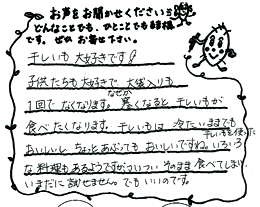 お声をお聞かせください
どんなことでも、ひとことでも結構
です。ぜひお寄せ下さい。
干しいも 大好きです!
子供たちも大好きで 大袋入りも
1回でなくなります。なぜか寒くなると干しいもが
食べたくなります。干しいもは、冷たいままでも
おいしいし ちょっとあぶっても おいしいですね。干しいもを使った いろいろ
な料理もあるようですが ついつい そのまま食べてしまい、
いまだに 試せません。でも いいのです。